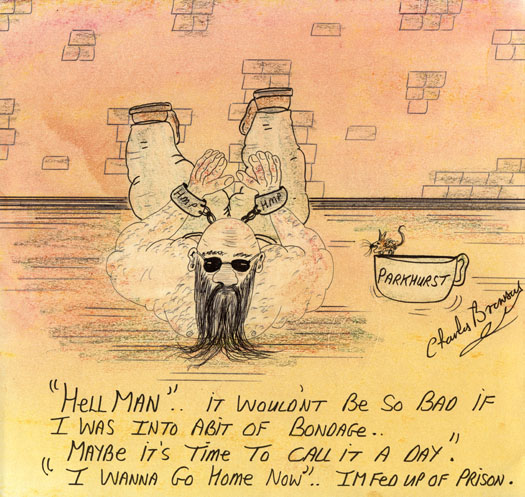 HMP
HMP
PARKHURST
Charles Bronson
"HELL MAN".. IT WOULDN'T BE SO BAD IF
I WAS INTO ABIT OF BONDAGE..
MAYBE IT'S TIME TO CALL IT A DAY".
" I WANNA GO HOME NOW".. IM FED UP OF PRISON.